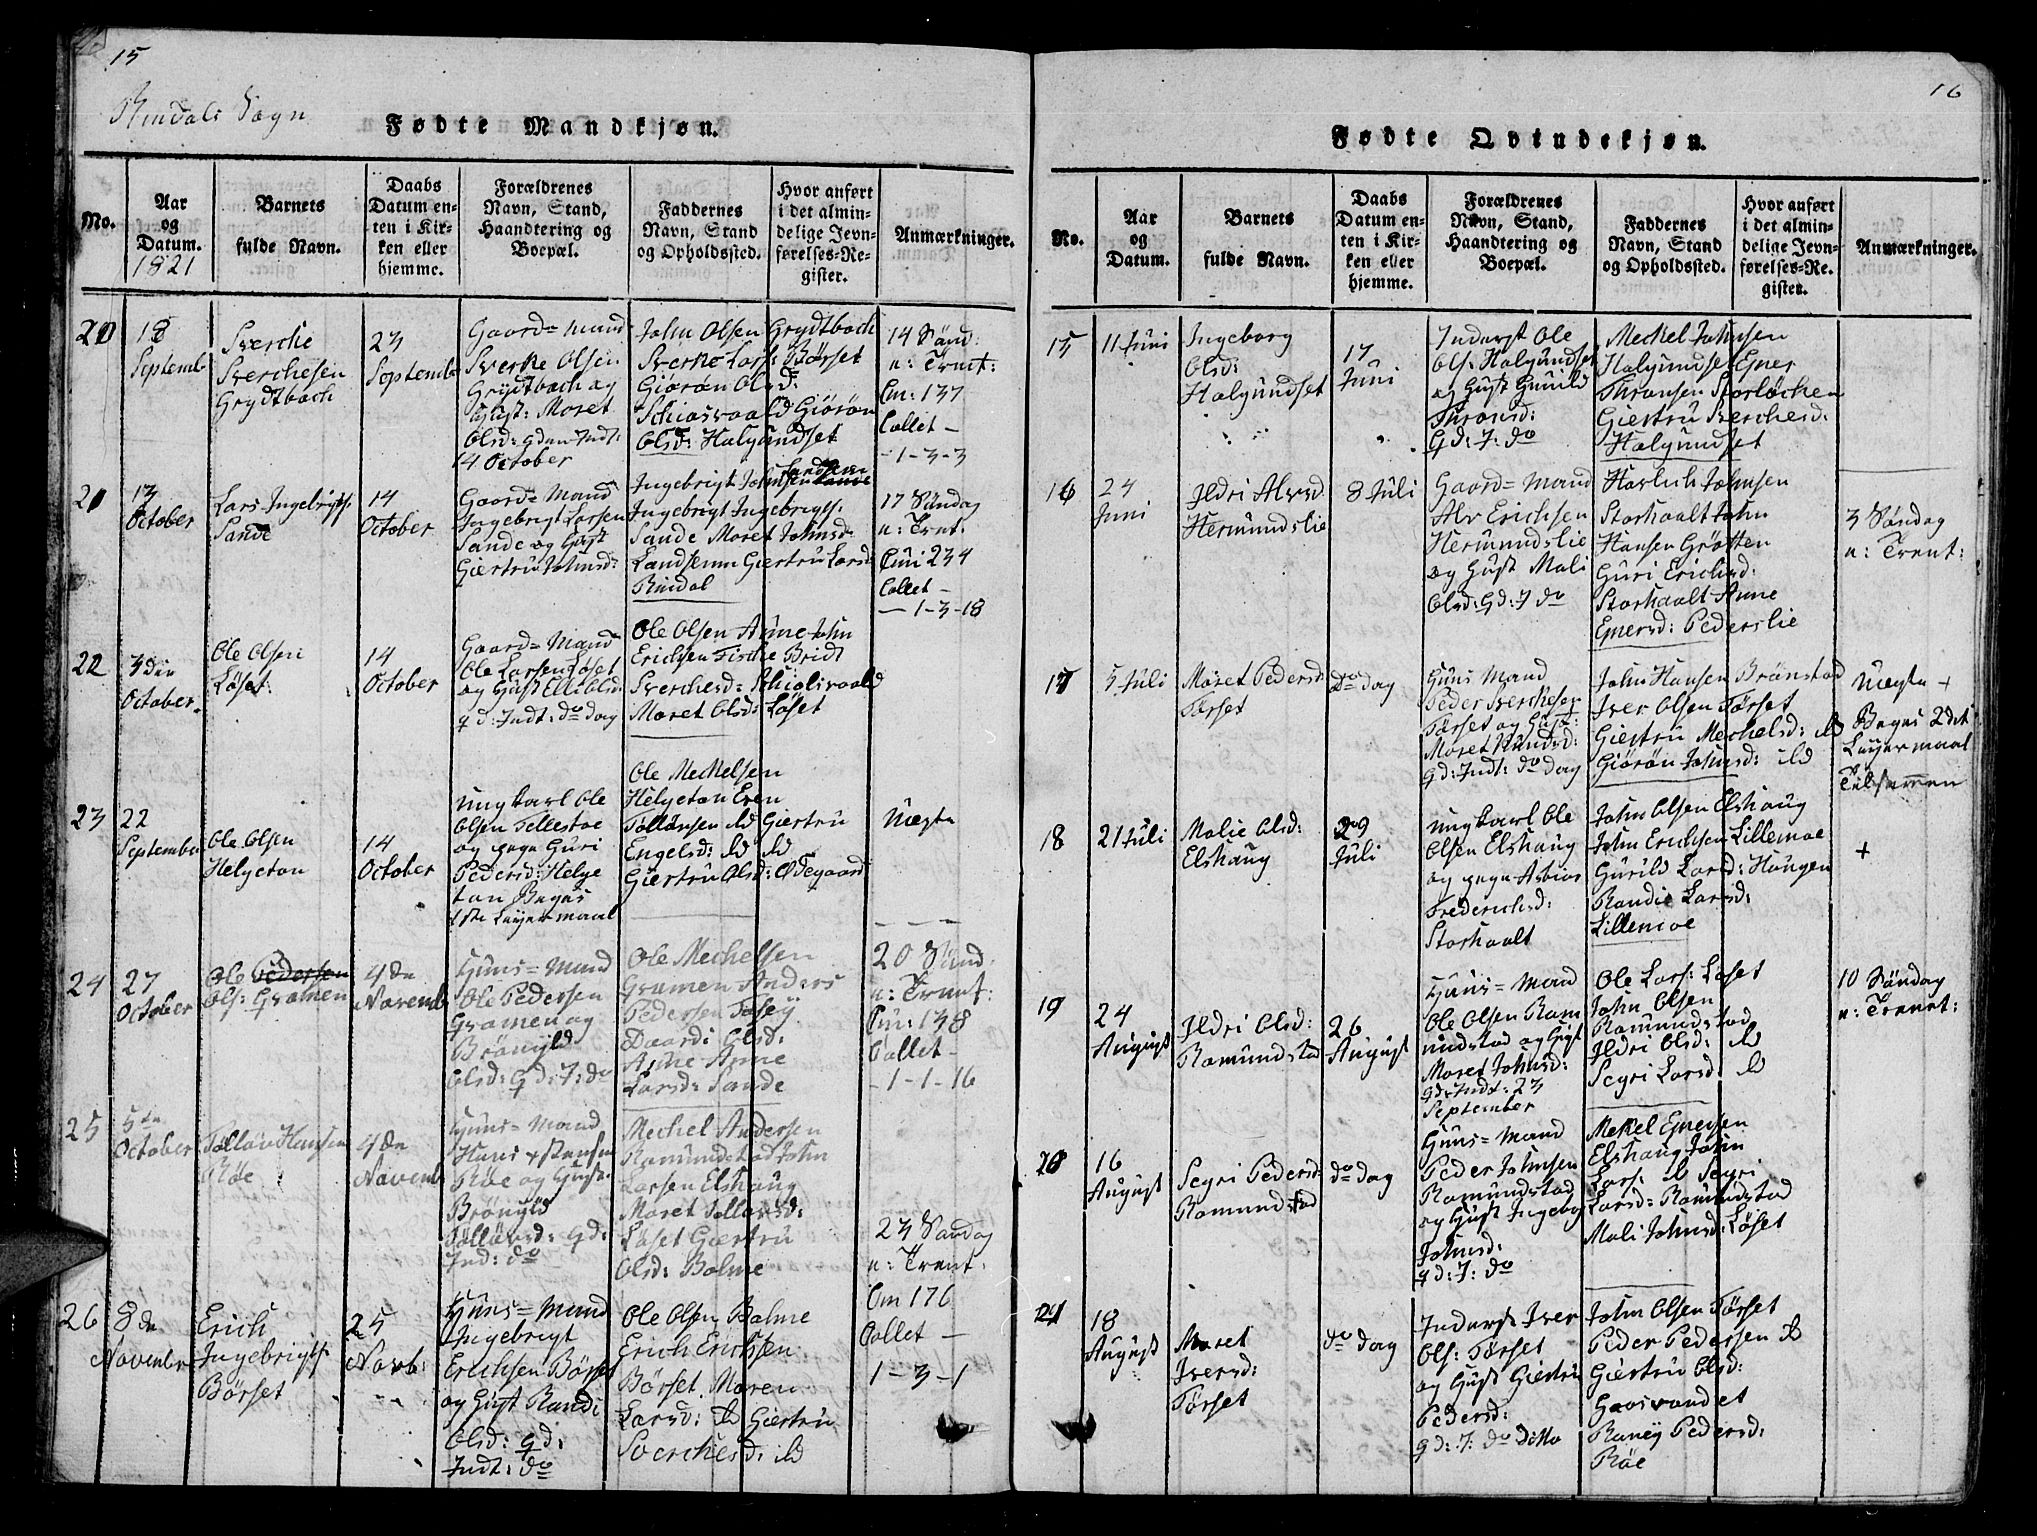 15
Rindals Sogn
Fødte Mandkjøn.
No.
Aar
og
Datum.
1821
Barnets
fulde Navn.
Daabs
Datum en-
ten i Kir-
ken eller
hjemme.
Forældrenes
Navn, Stand,
Haandtering og
Boepæl.
Faddernes
Navn, Stand
og Opholdssted.
Hvor anført
i det almin-
delige Jevn-
førelses-Re-
gister.
Anmærkninger.
20
18
Septemb
Sverche
Sverchesen
Grydtbach
23
Septemb
Gaord=mand
Sverke Olsen
Grydtbach og
Hust: Moret
Olsd: Gd an Indt:
14 October
John Olsen Grydtbach
Sverke Lars: Børset
Giørøn Olsd:
Schiosvaald Giørøn
Olsd: Halgundset
14 Sønd:
n: Trent:
Cm: 137
Collet -
- 1-3-3
21
13
October
Lars Ingebrigts.
Sande
14
October
Gaord=Mand
Ingebrigt Larsen
Sande og Hust
Giertru Johnsd:
Ingebrigt Johnsen Landsem
Ingebrigt Ingebrigts.
Sande Moret Johnsd:
Landsemm Giertru Larsd
Rindal
17 Søndag
n: Trent.
Cm: 234
Collet -
- 1-3-18
22
3den
October
Ole Olsen
Løset
14
October
Gaord=Mand
Ole Larsen Løset
og Hust Eli Olsd:
gd: Indt: do dag
Ole Olsen Anne John
Erichsen Fiske Bridt
Sverchesd: Schiølsvaald
Moret Olsd: Løset
23
22
September
Ole Olsen
Helgeton
14
October
Ungkarl Ole
Olsen Tellestoe
og pige Guri
Pedersd: Helge
ton Beges
1ste Leyermaal
Ole Mechelsen
Helgeton Even
Tolløvsen ib Giertru
Engelsd: ib ib
Giertru Olsd: Ødegaard
Uægte
24
27
October
Ole Pedersen
Ols: Gramen
4de
Novemb
Huus=Mand
Ole Pedersen
Gramen og
Brønyld
Olsd: Gd: I: do
Ole Mechelsen
Gramen Anders
Pedersen
Daardi Olsd:
Anne Anne
Larsd: Sande
20 Sønd.
n: Trent:
Cm: 138
Collet -
- 1-1-16
25
5te
October
Tølløv Hansen
Røe
4de
Novemb
Huus=Mand
Hans
Røe og Hust
Brønyld
Tølløvsd: Gd:
Ind: do
Mechel Andersen
Romundstad John
Larsen Elshaug
Moret Tollovsd:
Løset Giertru
Olsd: Bolme
23 Søndag
n: Trent:
Cm 176
Collet -
1-3-1
26
8de
November
Erich
Ingebrigts
Børset
25
Novb:
Huus=Mand
Ingebrigt
Erichsen Børset
og Hust Randi
Olsd: Gd:
Indt: do
Ole Olsen Bolme
Erich Erichsen
Børset Maren
Larsd: ib Giertru
Sverchesd: ib
16
Fødte Qvindekjøn.
No.
Aar
og
Datum.
Barnets
fulde Navn.
Daabs
Datum en-
ten i Kir-
ken eller
hjemme.
Forældrenes
Navn, Stand,
Haandtering og
Boepæl.
Faddernes
Navn, Stand
og Opholdssted.
Hvor anført
i det almin-
delige Jevn-
førelses-Re-
gister.
Anmærkninger.
15
11 Juni
Ingeborg
Olsd:
Halgundset
17
Juni
Inderst Ole
Ols: Halgundset
og Hust Gunild
Tronsd:
Gd: I: do
Mechel Johnsen
Halgundset Ener
Thronsen Storløchen
Giertru Sverchesd:
Halgundset
16
24
Juni
Ildri Alvsd
Hermundslie
8 Juli
Gaord=Mand
Alv Erichsen
Hermundslie
og Hust Mali
Olsd: Gd: I do
Havlich Johnsen
Storhaalt John
Hansen Grøtten
Guri Erichsd:
Storhaalt Anne
Enersd: Pederslie
3 Søndag
n: Trent:
17
5 Juli
Moret Pedersd:
Tørset
Do dag
Huus Mand
Peder Sverchesen
Tørset og Hust:
Moret Knudsd:
Gd: Indt: do dag
John Hansen Brønstad
Iver Olsen Tørset
Giertru Mechelsd: ib
Giørøn Johnsd: ib
Uægte +
Beges 2det
Leyermaal
Tilsammen
18
21 Juli
Malie Olsd:
Elshaug
29
Juli
Ungkarl Ole
Olsen Elshaug
og pige Asbiør
Frederichsd:
Storhaalt
John Olsen Elshaug
John Erichsen Lillemoe
Gurild Larsd: Haugen
Randie Larsd:
Lillemoe
+
19
24
August
Ildri Olsd:
Romundstad
26
August
Huus=Mand
Ole Olsen Rom
undstad og Hust
Moret Johnsd:
Gd: Indt: 23
September
Ole Lars: Løset
John Olsen
Romundstad
Ildri Olsd: ib
Segri Larsd ib
10 Søndag
n: Trent:
20
16
August
Segri Pedersd:
Romundstad
do dag
Huus=Mand
Peder Johnsen
Romundstad
og Hust Ingebor
Johnsd:
gd: I: do
Mekel Enersen
Elshaug John
Lars: ib Segri
Larsd: Romundstad
Mali Johnsd: Løset
21
18
August
Moret
Iversd:
Tørset
do dag
Inderst Iver
Ols: Tørset
og Hust Giertru
Pedersd:
gd: I: do ditto
John Olsen Tørset
Peder Pedersen ib
Giertru Olsd:
Gaasvandet
Raney Pedersd:
Røe